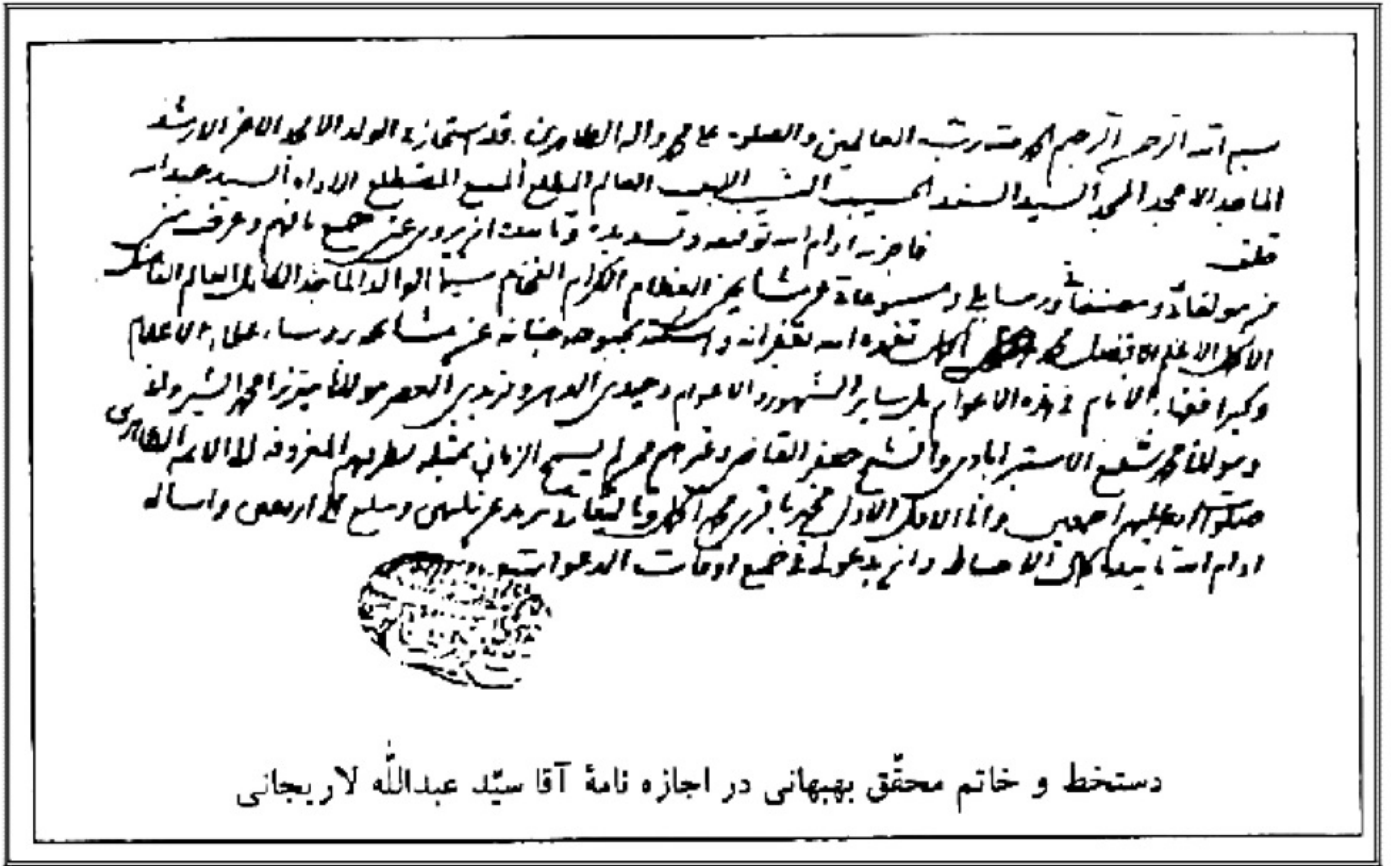 بسم الله الرحمن الرحیم الحمد لله رب العالمین والصلوة علی محمد واله الطاهرین. قد استجاز منی الولد الامجد الاعز الارشد
الماجد الامجد الممجد السید السند الحسیب النسیب اللبیب العالم المطلع المضطلع الاواه السید عبدالله
فاجزته ادام الله توفیقه وتسدیده وتأییده ان یروی عنی جمیع ما فهم وعرف منی
من مولفاتی ومصنفاتی ورسایلی ومسموعاتی عن مشایخی العظام الکرام الفخام سیما الوالد الماجد الکامل العالم الفاضل
الاکمل الاعلم الافضل محمد اکمل تغمده الله بغفرانه واسکنه بحبوحة جنانه عن مشایخه روساء علماء الاعلام
وکبراء فقهاء الانام فی هذه الاعوام بل سایر الشهور والاعوام وحیدی الدهر وفریدی العصر مولانا میرزا محمد الشیروانی
ومولانا محمد شفیع الاسترابادی والشیخ جعفر القاضی وغیرهم بطرقهم المعروفة الی الائمة
صلوات الله علیهم اجمعین وانا الاقل الاذل محمد باقر بن محمد اکمل
ادام الله تاییده الاحتیاط وان یدعو لی فی جمیع اوقات الدعوات
دستخط و خاتم محقّق بهبهانی در اجازه نامهٔ آقا سیّد عبداللّه لاریجانی